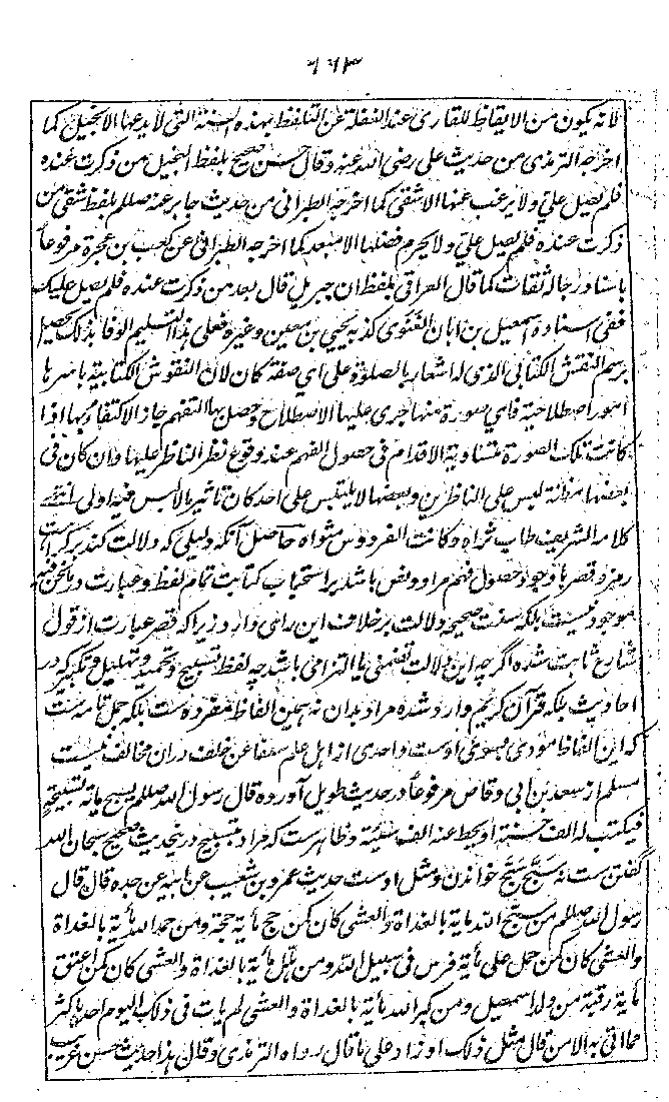 ٦٦٣
لانه یکون من الایقاظ للقاری عند الغفلة عن التلفظ بهذه السنة التی لا یدعها الا البخیل کما
اخرجه الترمذی من حدیث علی رضی الله عنه وقال حسن صحیح بلفظ البخیل من ذکرت عنده
فلم یصل علیّ ولا یرغب عنها الا شقی کما اخرجه الطبرانی من حدیث جابر عنه صللم بلفظ شقی من
ذکرت عنده فلم یصل علیّ ولا یحرم فضلها الا مبعد کما اخرجه الطبرانی عن کعب بن عجرة مرفوعاً
باسناد رجاله ثقات کما قال العراقی بلفظ ان جبریل قال بعد من ذکرت عنده فلم یصل علیک
ففی اسناده اسمعیل بن ابان الغنوی کذبه یحیی بن معین وغیره فعلی هذا التسلیم الوفا بذلک یحصل
برسم النقش الکتابی الذی له اشعار بالصلوة علی ای صفة کان لان النقوش الکتابیة باسرها
امور اصطلاحیة فای صورة منها جری علیها الاصطلاح وحصل بها التفهم جاز الاکتفاء بها اذا
کانت تلک الصورة متساویة الاقدام فی حصول الفهم عند وقوع نظر الناظر علیها وان کان فی
بعضها مظانة لیس علی الناظرین وبعضها لا یلتبس علی احد کان تاثیر الالبس فیه اولی انتهی
کلامه الشریف طاب ثراه وکانت الفردوس مثواه حاصل آنکه دلیلی که دلالت کند بر کراهت
رمز وقصر با وجود حصول فهم مراد ونص باشد بر استحباب کتابت تمام لفظ وعبارت در
موجود نیست بلکه سنت صحیحه دلالت بر خلاف این رای دارد زیرا که قصر عبارت از قول
شارع ثابت شده اگر چه این دلالت تضمنی یا التزامی باشد چه لفظ تسبیح وتحمید وتهلیل وتکبیر که در
احادیث بلکه قرآن کریم وارد شده مراد بدان نه همین الفاظ مفرده ست بلکه جمل تامه ست
که این الفاظ مودی بسوی اوست واحدی از اهل علم سلفا عن خلف دران مخالف نیست
مسلم از سعد بن ابی وقاص مرفوعاً در حدیث طویل آورده قال رسول الله صللم یسبح مایة تسبیحة
فیکتب له الف حسنة او یحط عنه الف سیئة وظاهرست که مراد بتسبیح درینحدیث صحیح سبحان الله
گفتن ست نه سبّح سبّح خواندن ومثل اوست حدیث عمرو بن شعیب عن ابیه عن جده قال قال
رسول الله صللم من سبّح الله مایة بالغداة والعشی کان کمن حج مایة حجة ومن حمد الله مایة بالغداة
والعشی کان کمن حمل علی مایة فرس فی سبیل الله ومن هلّل مایة بالغداة والعشی کان کمن اعتق
مایة رقبة من ولد اسمعیل ومن کبر الله مایة بالغداة والعشی لم یات فی ذلک الیوم احد باکثر
مما اتی به الا من قال مثل ذلک او زاد علی ما قال رواه الترمذی وقال هذا حدیث حسن غریب